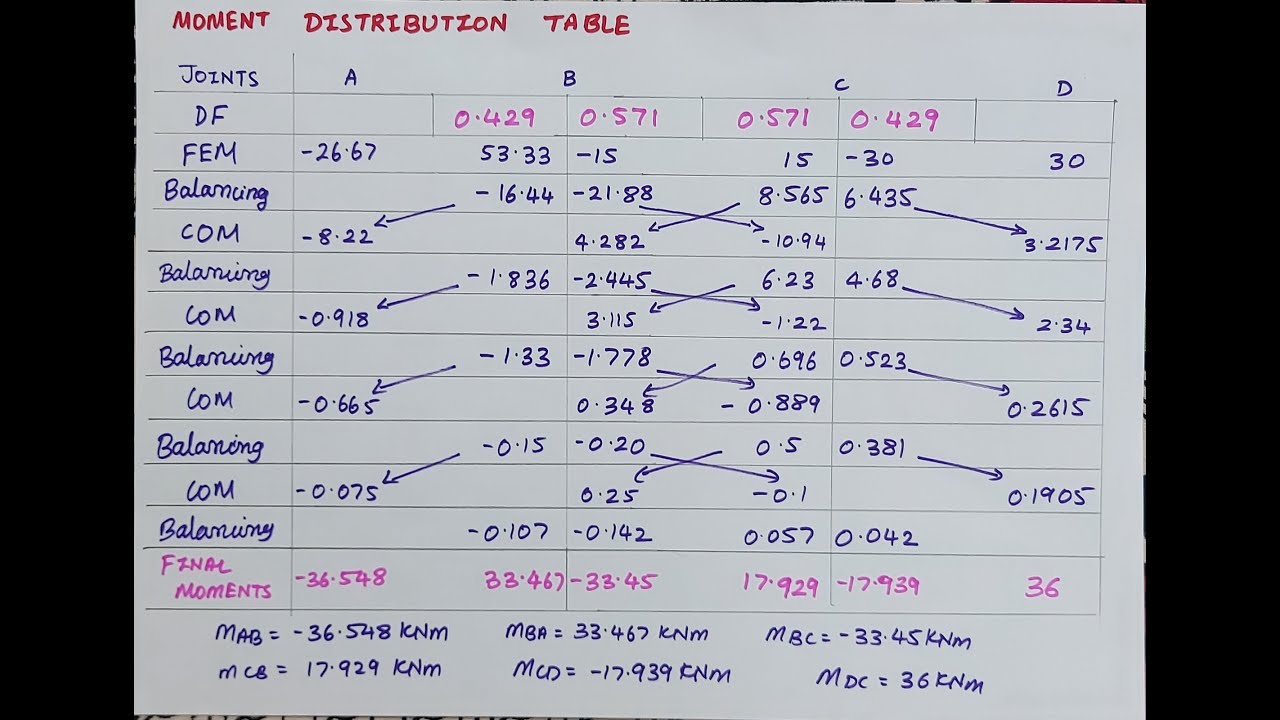 MOMENT DISTRIBUTION TABLE
JOINTS A B C D
DF 0.429 0.571 0.571 0.429
FEM -26.67 53.33 -15 15 -30 30
Balancing -16.44 -21.88 8.565 6.435
COM -8.22 4.282 -10.94 3.2175
Balancing -1.836 -2.445 6.23 4.68
COM -0.918 3.115 -1.22 2.34
Balancing -1.33 -1.778 0.696 0.523
COM -0.665 0.348 -0.889 0.2615
Balancing -0.15 -0.20 0.5 0.381
COM -0.075 0.25 -0.1 0.1905
Balancing -0.107 -0.142 0.057 0.042
FINAL MOMENTS -36.548 33.467 -33.45 17.929 -17.939 36
MAB = -36.548 KNm MBA = 33.467 KNm MBC = -33.45 KNm
MCB = 17.929 KNm MCD = -17.939 KNm MDC = 36 KNm